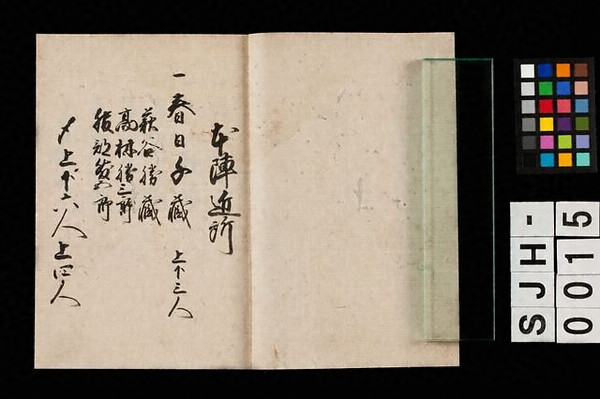 本陣近所
一春日千蔵 上下三人
萩谷勝蔵
高橋勝三郎
服部藤四郎
〆上下六人 上四人
SJH-
0015